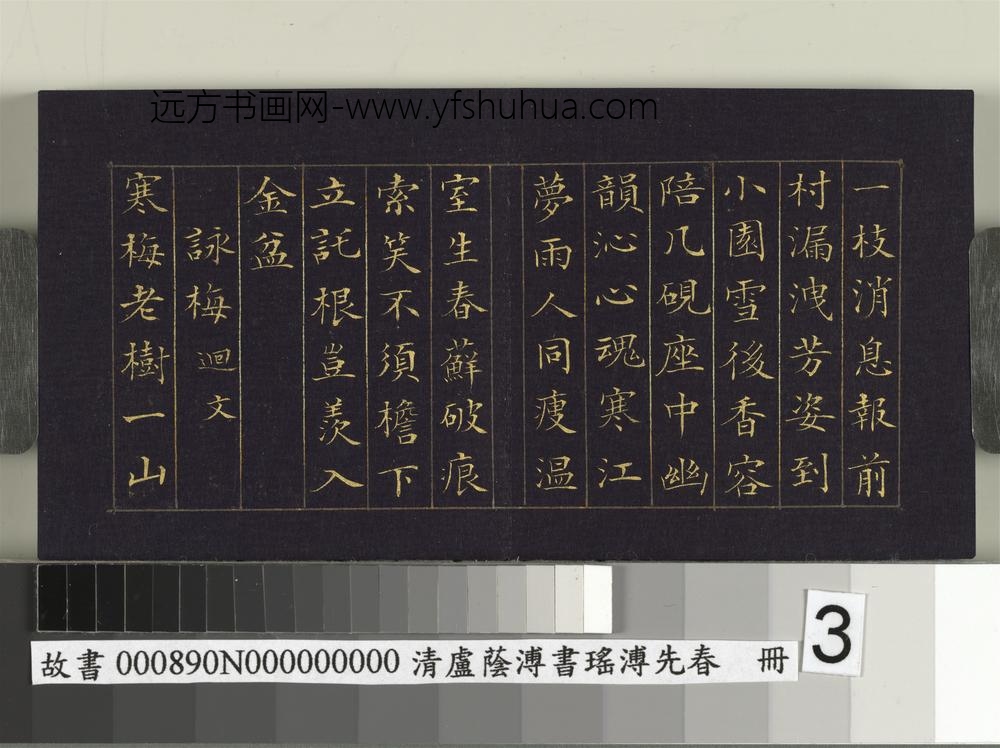 远方书画网-www.yfshuhua.com
一枝消息報前
村漏洩芳姿到
小園雪後香容
陪几硯座中幽
韻沁心魂寒江
夢雨人同瘦温
室生春蘇破痕
索笑不須檐下
立託根豈羨入
金盆
詠梅迴文
寒梅老樹一山
3
故書 000890N000000000 清盧蔭溥書瑤溥先春 冊